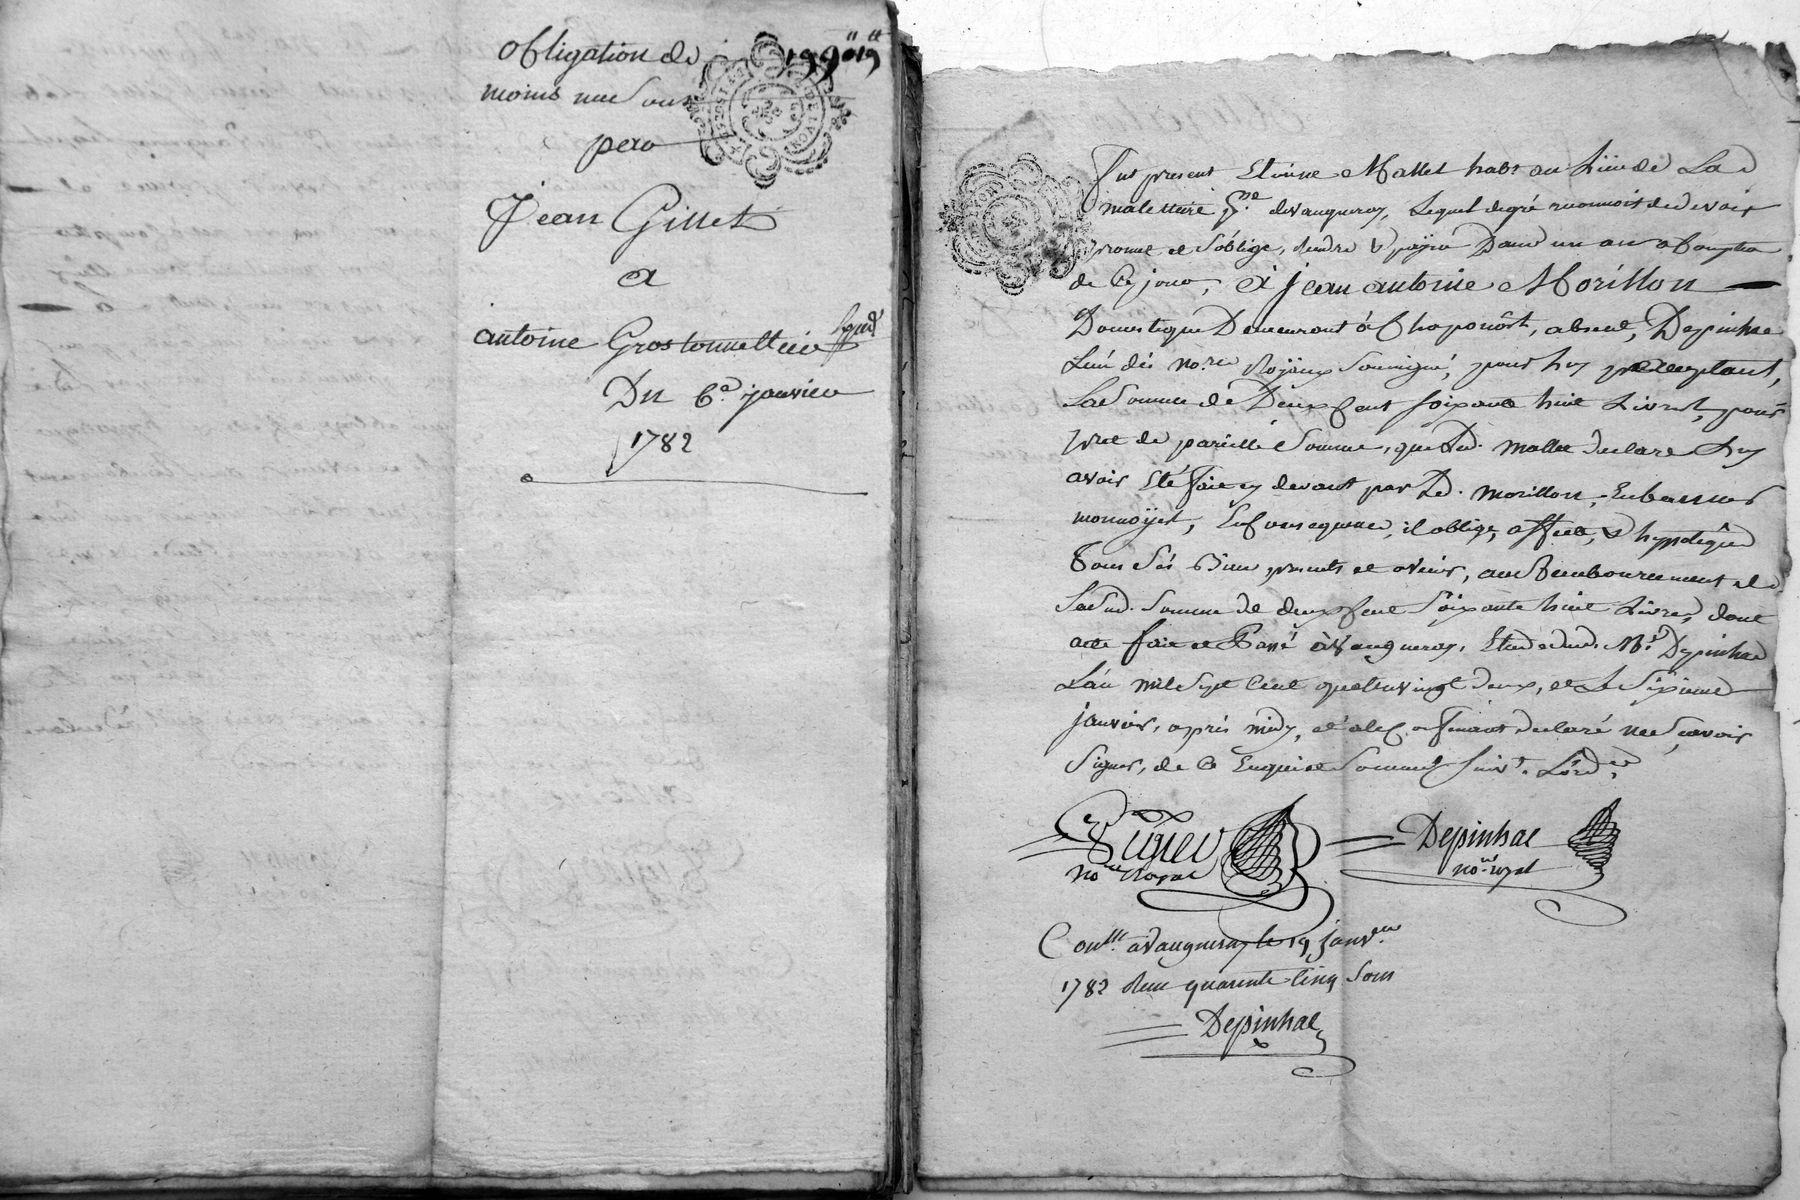 obligation de 199"19"
moins un sous
pera
Jean Gillet
a
antoine Grostonnellier
Du 6e janvier
1782
Fut present Etienne Mallet habt au Lieu de La
maletiere psse de Vaugneray, Lequel degré reconnois devoir
promet et s'oblige, rendre & payer Dans un an a Compter
de Ce jour, à jean antoine Morillon
Domestique Demeurant à Chaponôst, absent, Depinhac
L'un des nores Royaux soussigné, pour luy acceptant,
La Somme de Deux Cent soixante huit Livres, pour
pret de pareille Somme, que Led. Mallet declare luy
avoir Eté faite cy devant par Led. morillon, En bonnes
monnoyes, En consequence, il oblige, affecte, & hypotêque
Tous ses Biens presents et avenir, au Remboursement de
Lasud. Somme de deux Cent Soixante huit Livres, dont
acte fait et Passé à Vaugneray, Etude dud. Me Depinhac
L'an mil Sept Cent quatre vingt deux, et Le Sixieme
janvier, après midy, et declaré ne Scavoir
Signer, de Ce Enquis et Sommé suivt. L'ordce.
nore Royal
Depinhac
nore royal
Conllé a Vaugneray le 19 janver
1782 Reçu quarente Cinq Sous
Depinhac